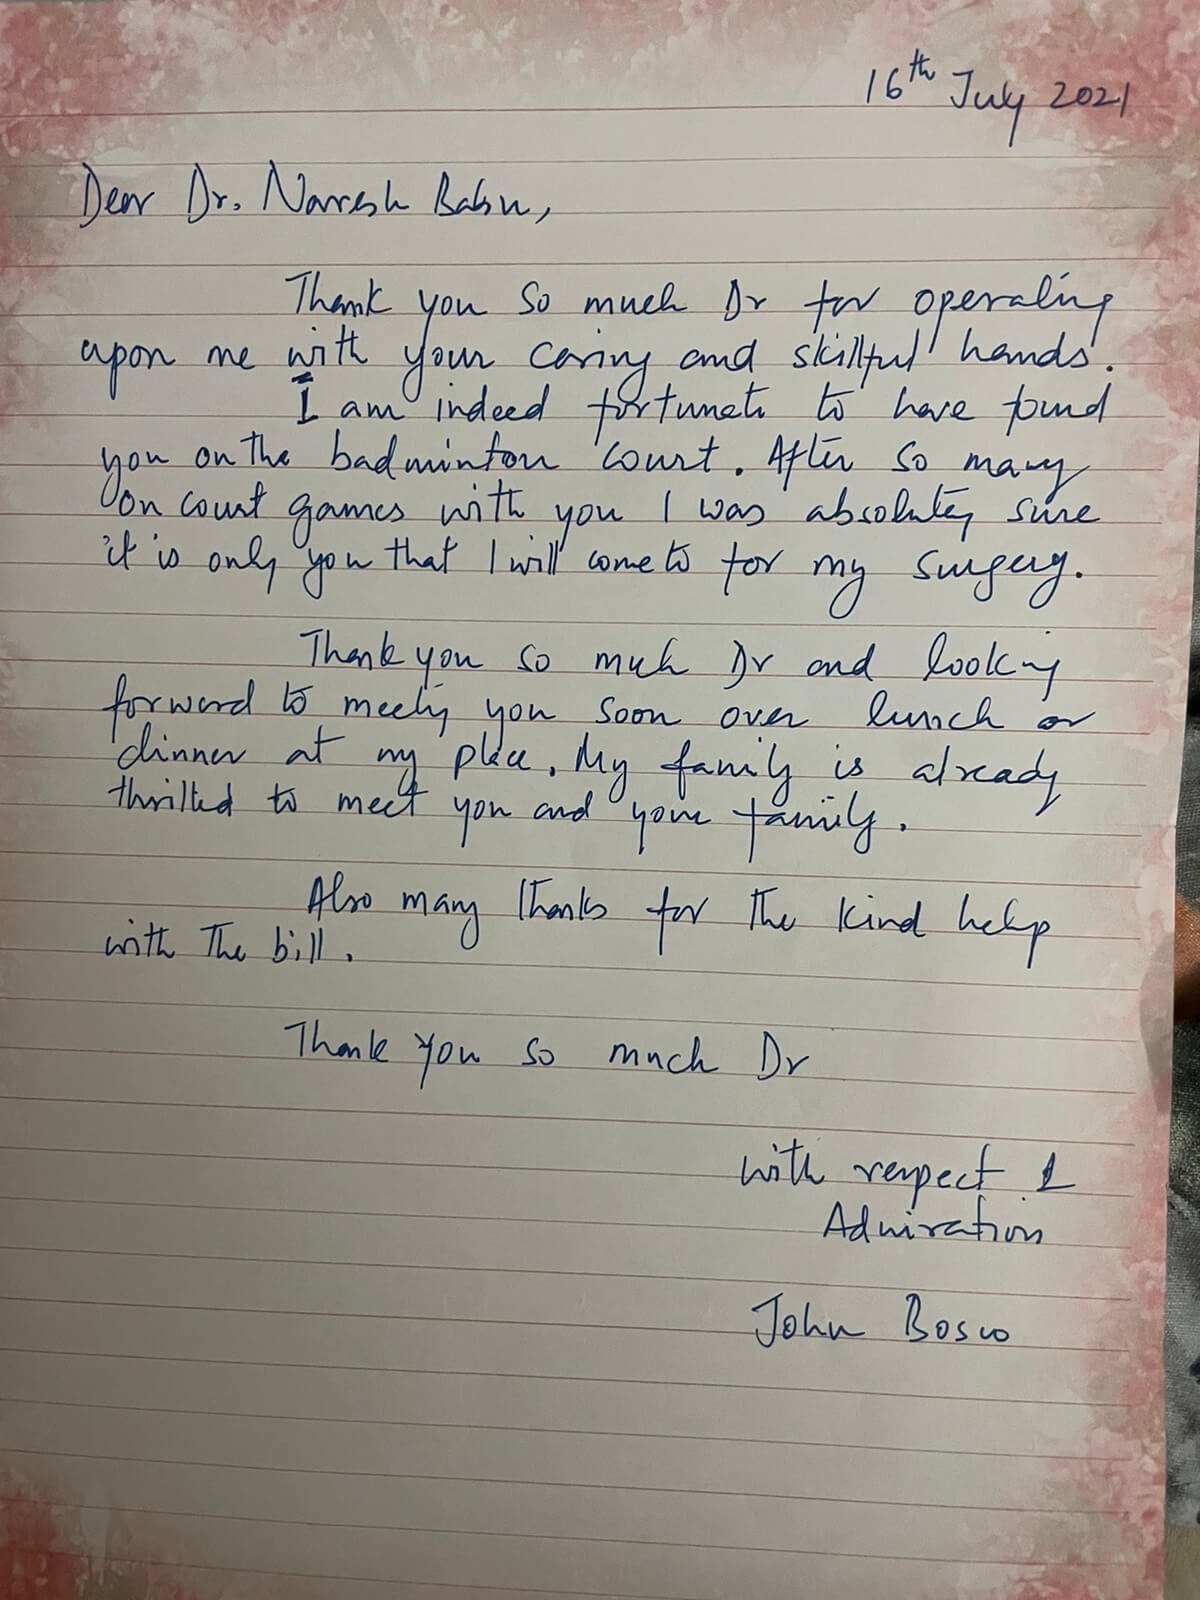 16th July 2021
Dear Dr. Naresh Babu,
Thank you so much Dr for operating
upon me with your caring and skillful hands.
I am indeed fortunate to have found
you on the badminton court. After so many
on court games with you I was absolutely sure
it is only you that I will come to for my surgery.
Thank you so much Dr and looking
forward to meeting you soon over lunch or
dinner at my place. My family is already
thrilled to meet you and your family.
Also many thanks for the kind help
with the bill.
Thank you so much Dr
with respect &
Admiration
John Bosco